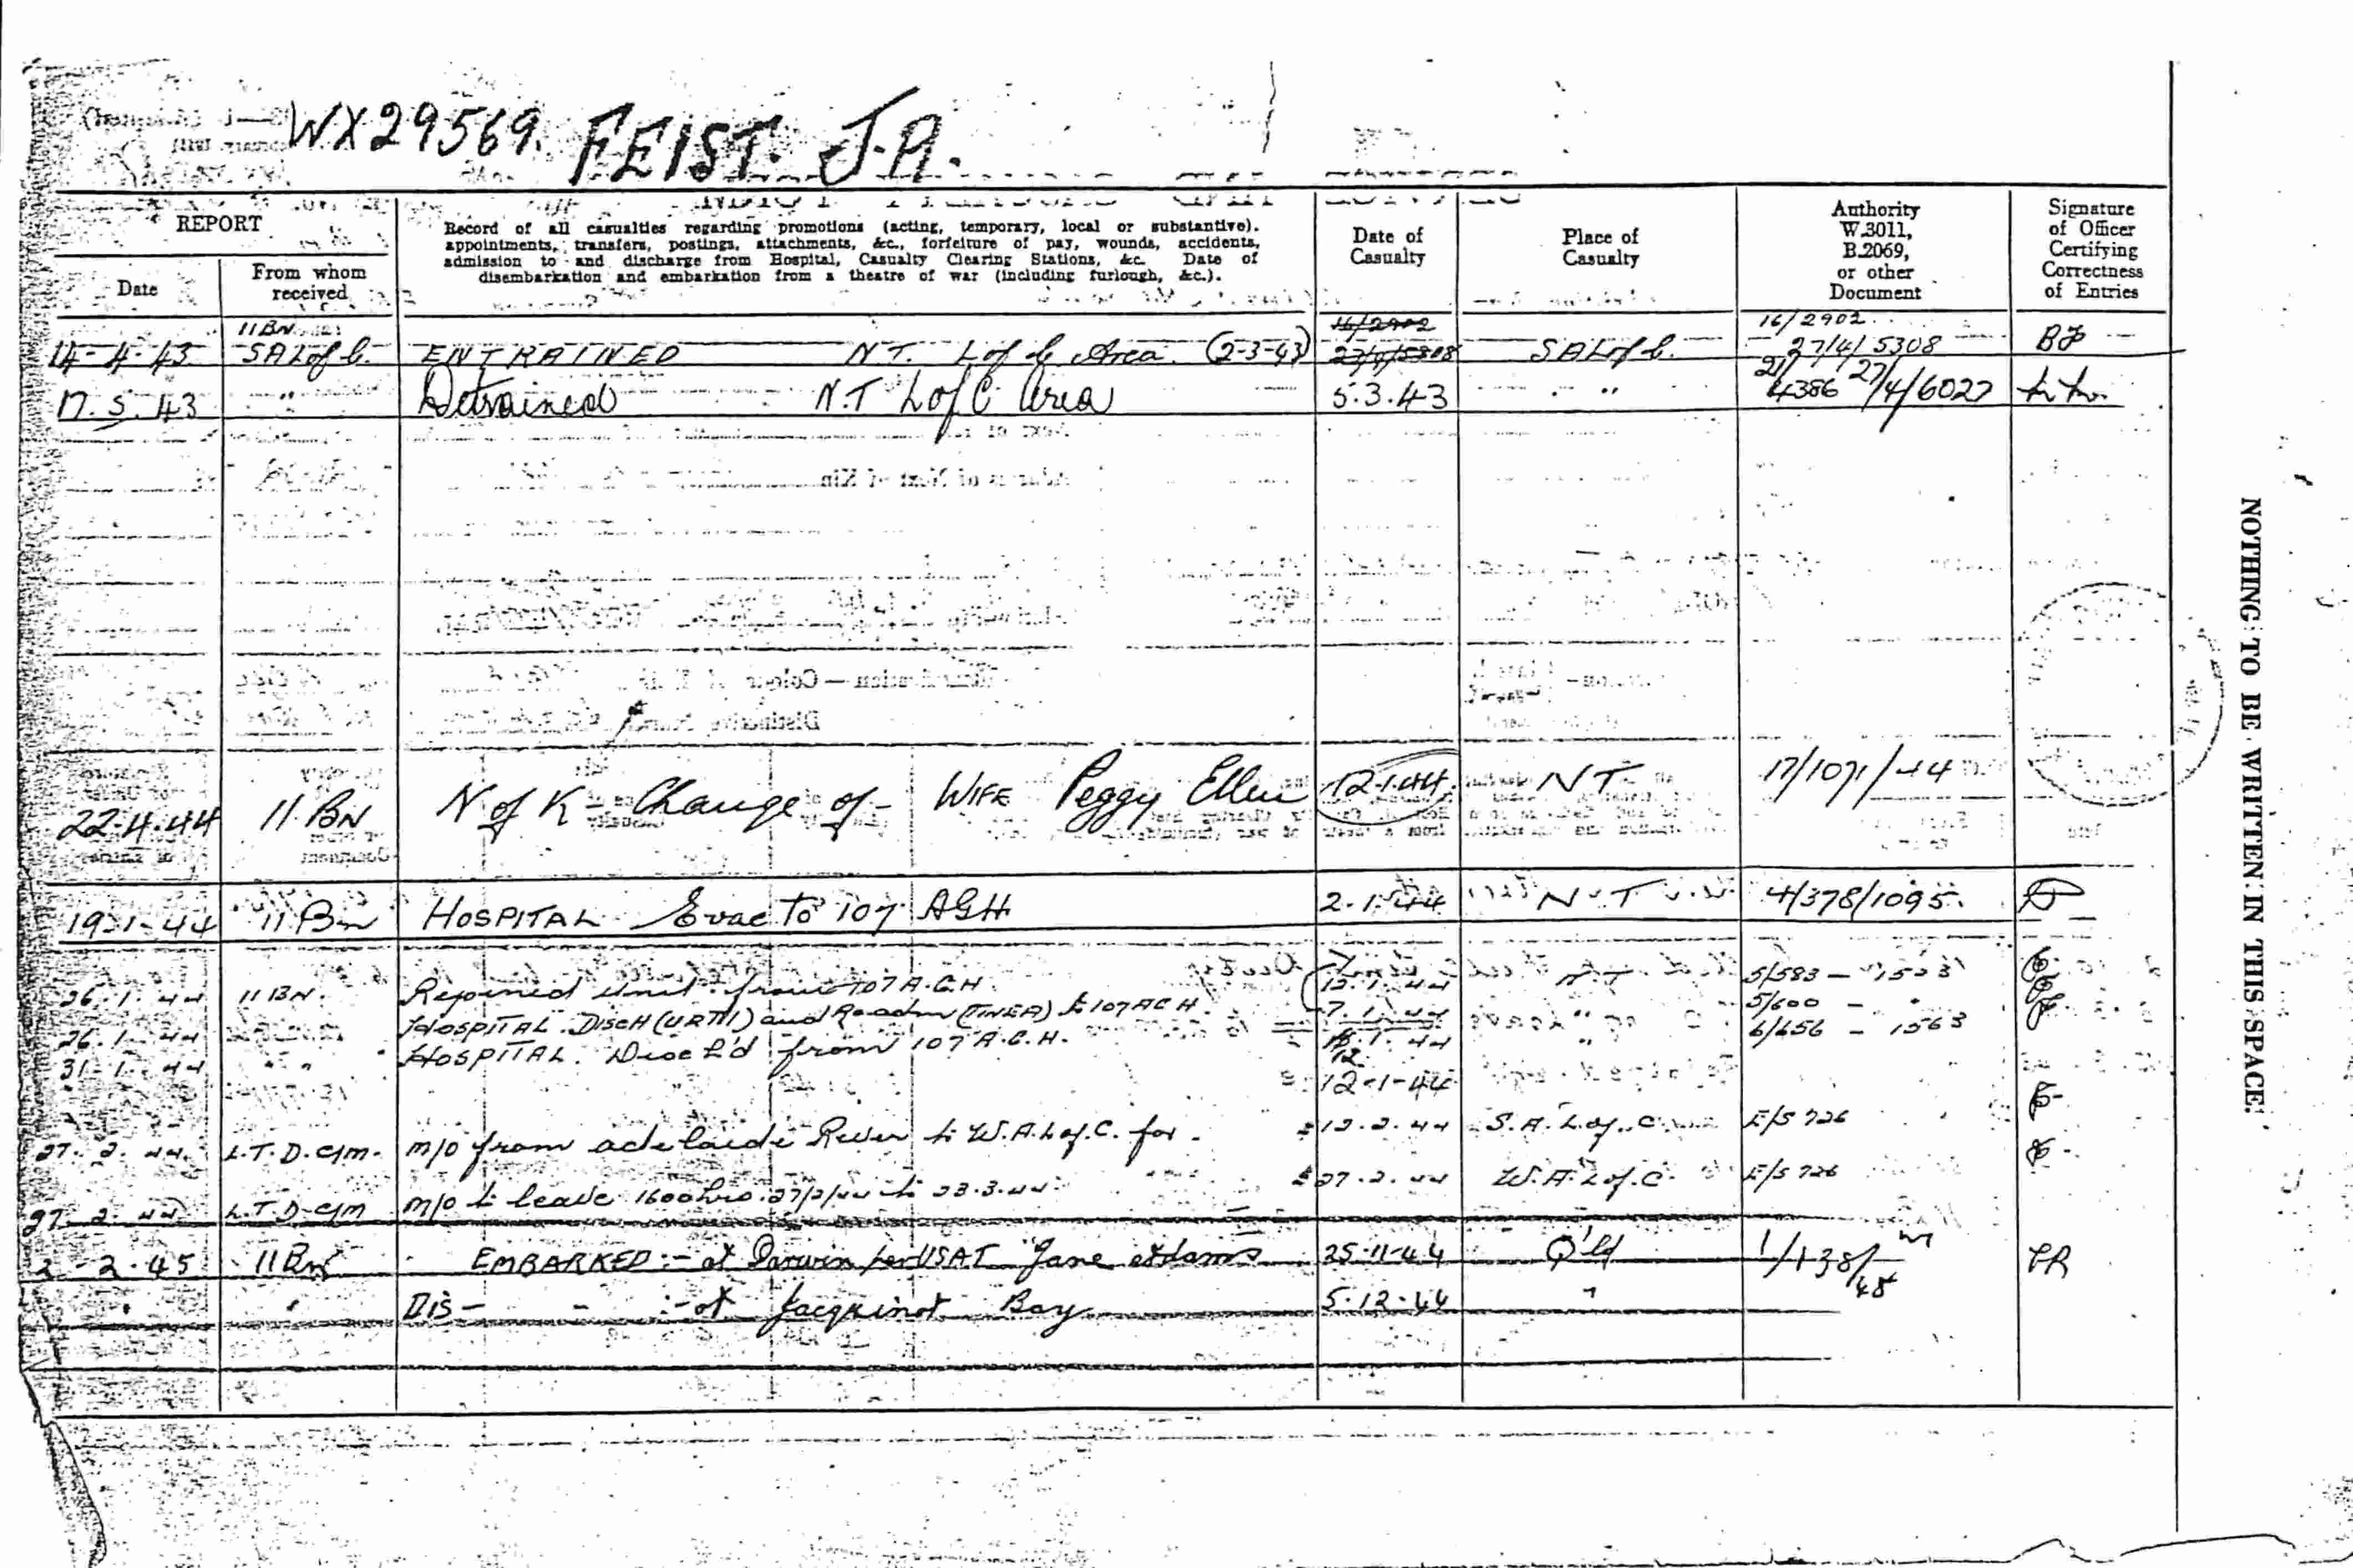 WX29569. FEIST. J.A.
REPORT
Date
From whom received
Record of all casualties regarding promotions (acting, temporary, local or substantive).
appointments, transfers, postings, attachments, &c., forfeiture of pay, wounds, accidents,
admission to and discharge from Hospital, Casualty Clearing Stations, &c. Date of
disembarkation and embarkation from a theatre of war (including furlough, &c.).
Date of Casualty
Place of Casualty
Authority W.3011, B.2069, or other Document
Signature of Officer Certifying Correctness of Entries
11 BN 16/2902 16/2902
14-4-43 SA L of C. ENTRAINED N.T. L of C Area. (2-3-43) 27/4/5308 SA L of C. 27/4/5308 BJ
17.5.43 " Detrained N.T L of C Area 5.3.43 " 4386 27/4/6027
Address of Next of Kin
Distinctive Marks
22-4-44 11 BN N of K - Change of - WIFE Peggy Ellen 12-1-44 NT 17/1071/44
19-1-44 11 Bn HOSPITAL Evac to 107 AGH 2.1.44 N.T 4/378/1095.
26.1.44 11 BN. Rejoined unit from 107 A.G.H. 12.1.44 N.T. 5/583 - 1523
26.1.44 HOSPITAL. DISCH (URTI) and Readm (TINEA) to 107 AGH. 7.1.44 " 5/600 - "
31-1-44 " " HOSPITAL. Disch'd from 107 A.G.H. 12.1.44 " 6/656 - 1563
12-1-44
27.2.44. L.T.D. C/M. M/O from Adelaide River to W.A. L of C. for 12.2.44 S.A. L of C E/S 726
27.2.44 L.T.D. C/M M/O to leave 1600 hrs 27/2/44 to 23.3.44 27.2.44 W.A. L of C. E/S 726
2-2-45 11 Bn EMBARKED:- at Darwin per USAT "Jane Adams 25-11-44 Q'ld 1/138/45 PR
" " DIS- - :- at Jacquinot Bay 5.12.44 "
NOTHING TO BE WRITTEN IN THIS SPACE.